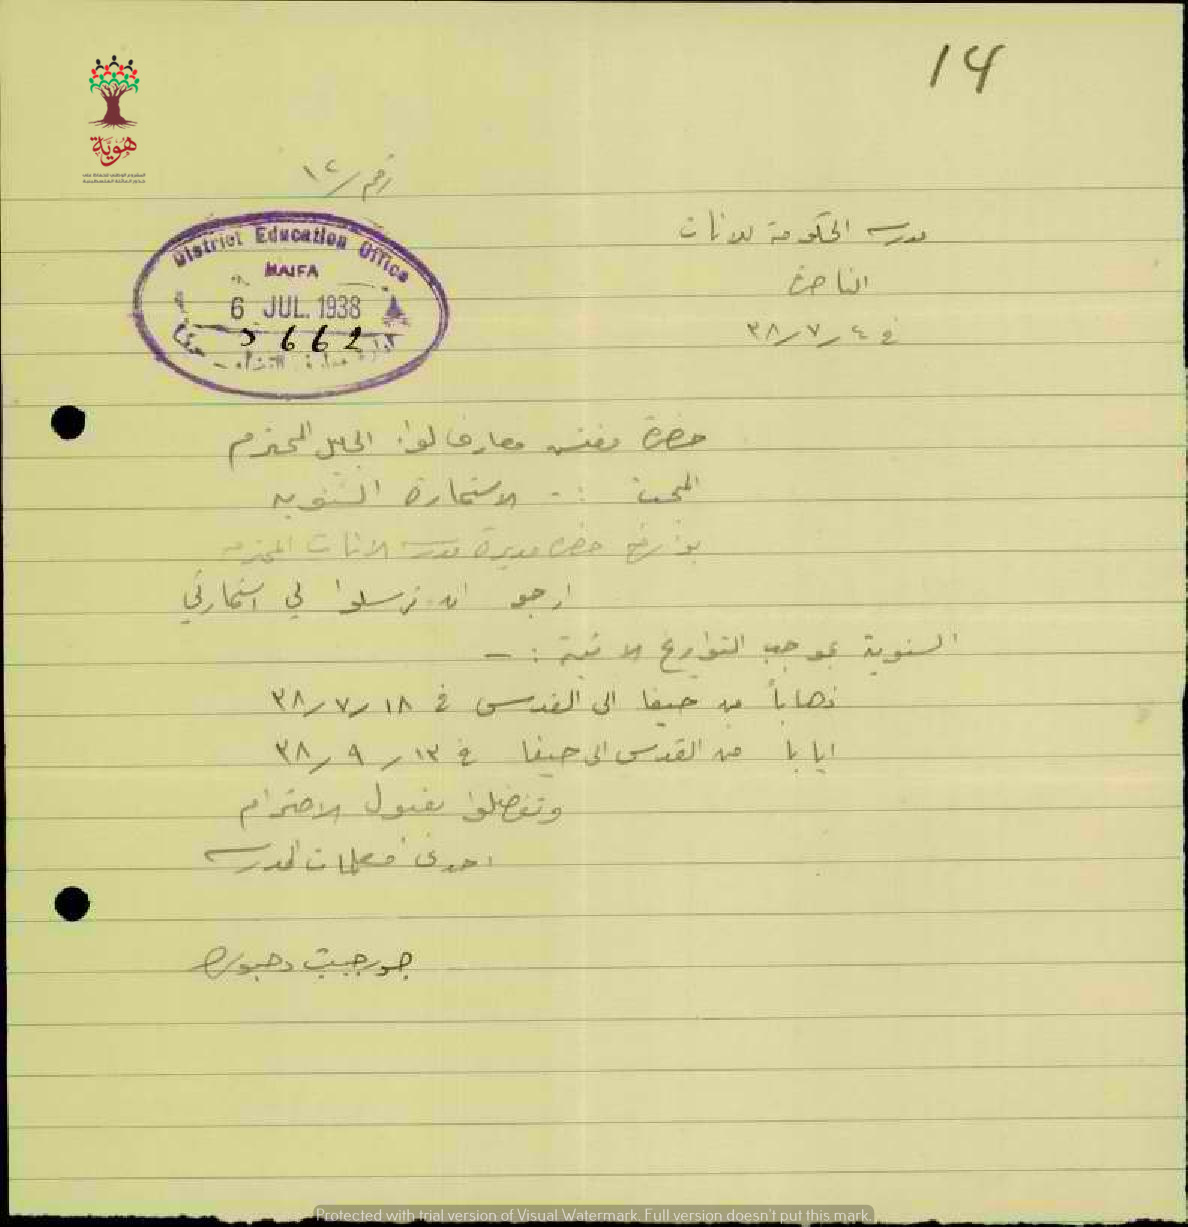 14
هُوِيَّة
رقم / ١٢
مدرسة الحكومة للاناث
الناصرة
في ٤ / ٧ / ٣٨
District Education Office
HAIFA
6 JUL. 1938
5662
حضرة مفتش معارف لواء الجليل المحترم
المبحث :- الاستمارة السنوية
بواسطة حضرة مديرة مدرسة الاناث المحترمه
ارجو ان ترسلوا لي استمارتي
السنوية بموجب التواريخ الاتية :-
ذهاباً من حيفا الى القدس في ١٨ / ٧ / ٣٨
ايابا من القدس الى حيفا في ١٣ / ٩ / ٣٨
وتفضلوا بقبول الاحترام
احدى معلمات المدرسة
جورجيت دحبورة
Protected with trial version of Visual Watermark. Full version doesn't put this mark.